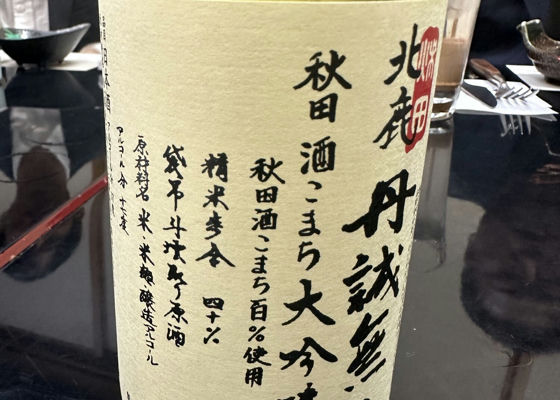 北鹿
秋田
丹誠無
秋田酒こまち大吟醸
秋田酒こまち百%使用
精米歩合 四十%
袋吊斗壜取り原酒
原材料名 米・米麹・醸造アルコール
アルコール分 十六度
日本酒